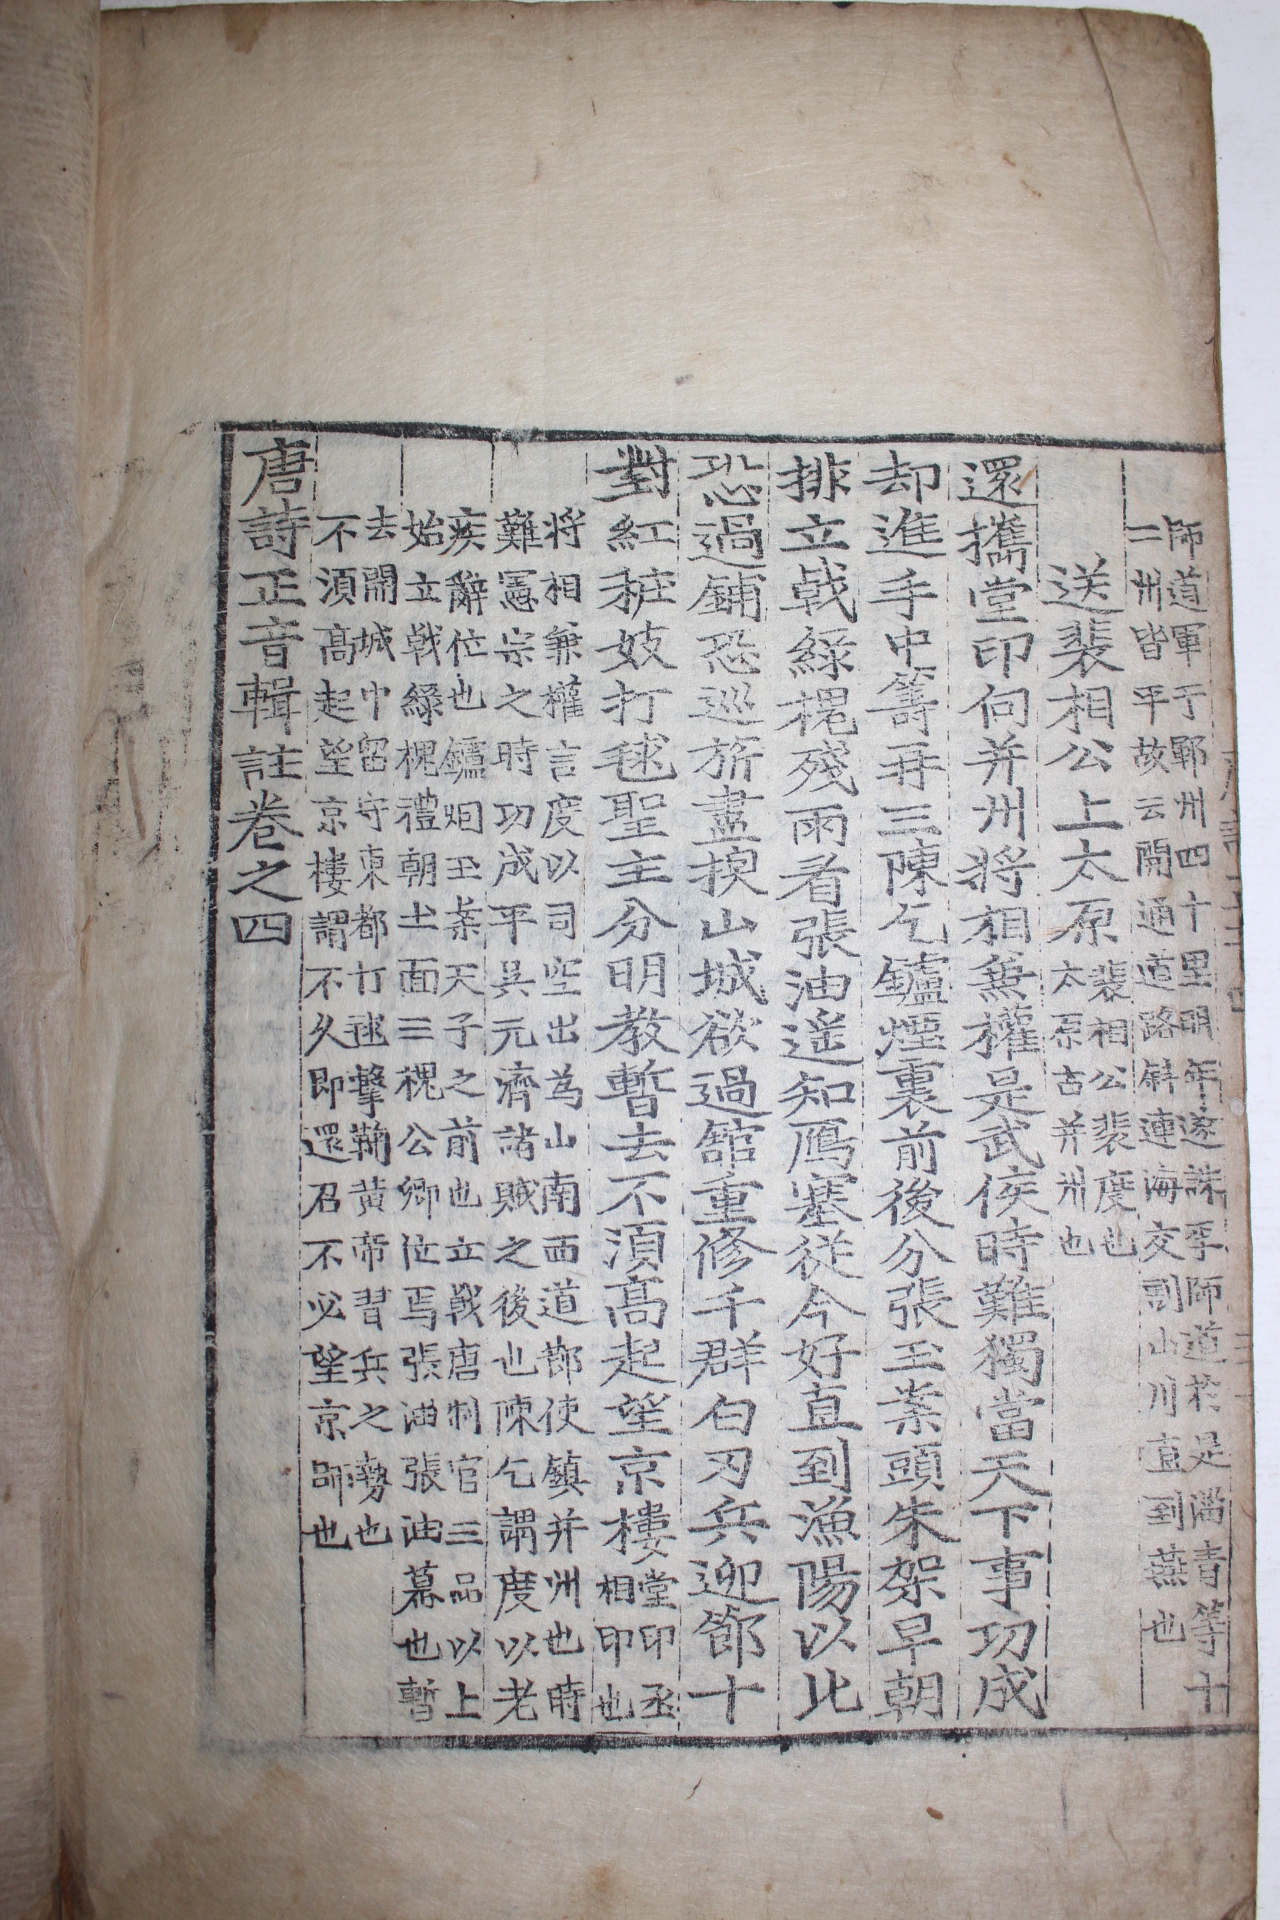 師道軍于鄆州四十里明年遂誅李師道於是淄青等十
二州皆平故云開通道路斜連海交割山川直到燕也
送裴相公上太原
裴相公裴度也
太原古并州也
還攜堂印向并州將相兼權是武侯時難獨當天下事功成
却進手中籌再三陳乞鑪煙裏前後分張玉案頭朱架早朝
排立戟綠槐殘雨看張油遥知鴈塞從今好直到漁陽以北
恐過鋪恐巡旂盡換山城欲過館重修千群白刃兵迎節十
對紅粧妓打毬聖主分明教暫去不須高起望京樓
堂印丞
相印也
將相兼權言度以司空出為山南西道節使鎮并州也時
難憲宗之時功成平吳元濟諸賊之後也陳乞謂度以老
疾辭位也鑪烟玉案天子之前也立戟唐制官三品以上
始立戟綠槐禮朝士面三槐公卿位焉張油張油幕也暫
去開城中留守東都打毬擊鞠黃帝習兵之勢也
不須高起望京樓謂不久即還召不必望京師也
唐詩正音輯註卷之四